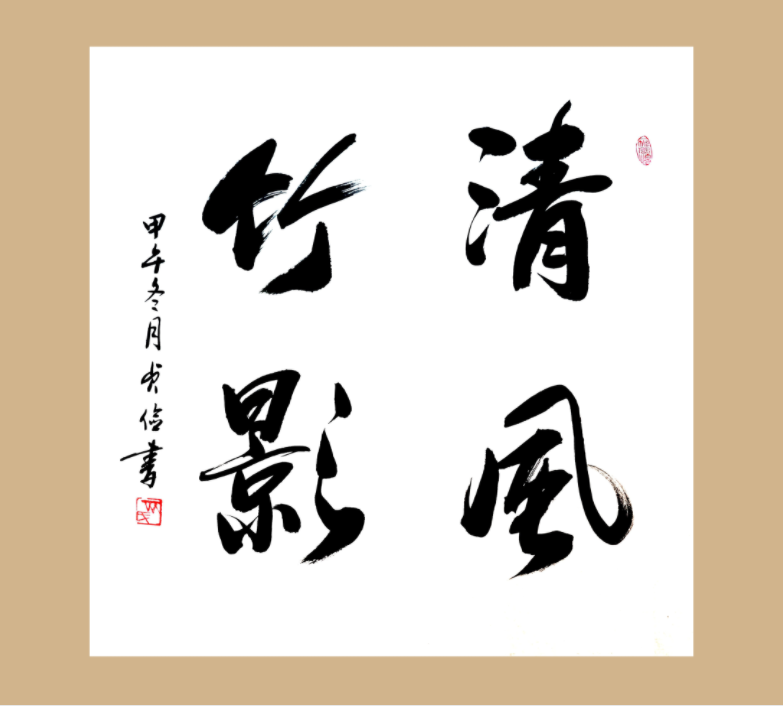 清風
竹影
甲午冬月贞俭書